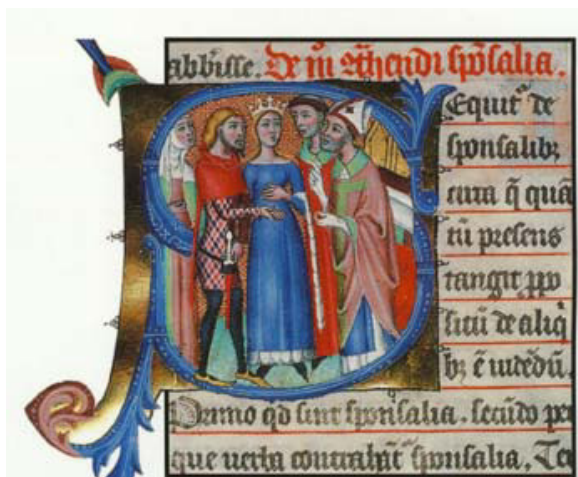 abbisse. De mō cōtͣhendi spōsalia.
Equitͬ de
sponsalibꝫ
cura q̄ quā
tū presens
tangit ppo
situ de aliq̇
bꝫ ē uidēdū.
Primo qd sint sponsalia. secūdo per
que uerba contrahātͬ sponsalia, Ter